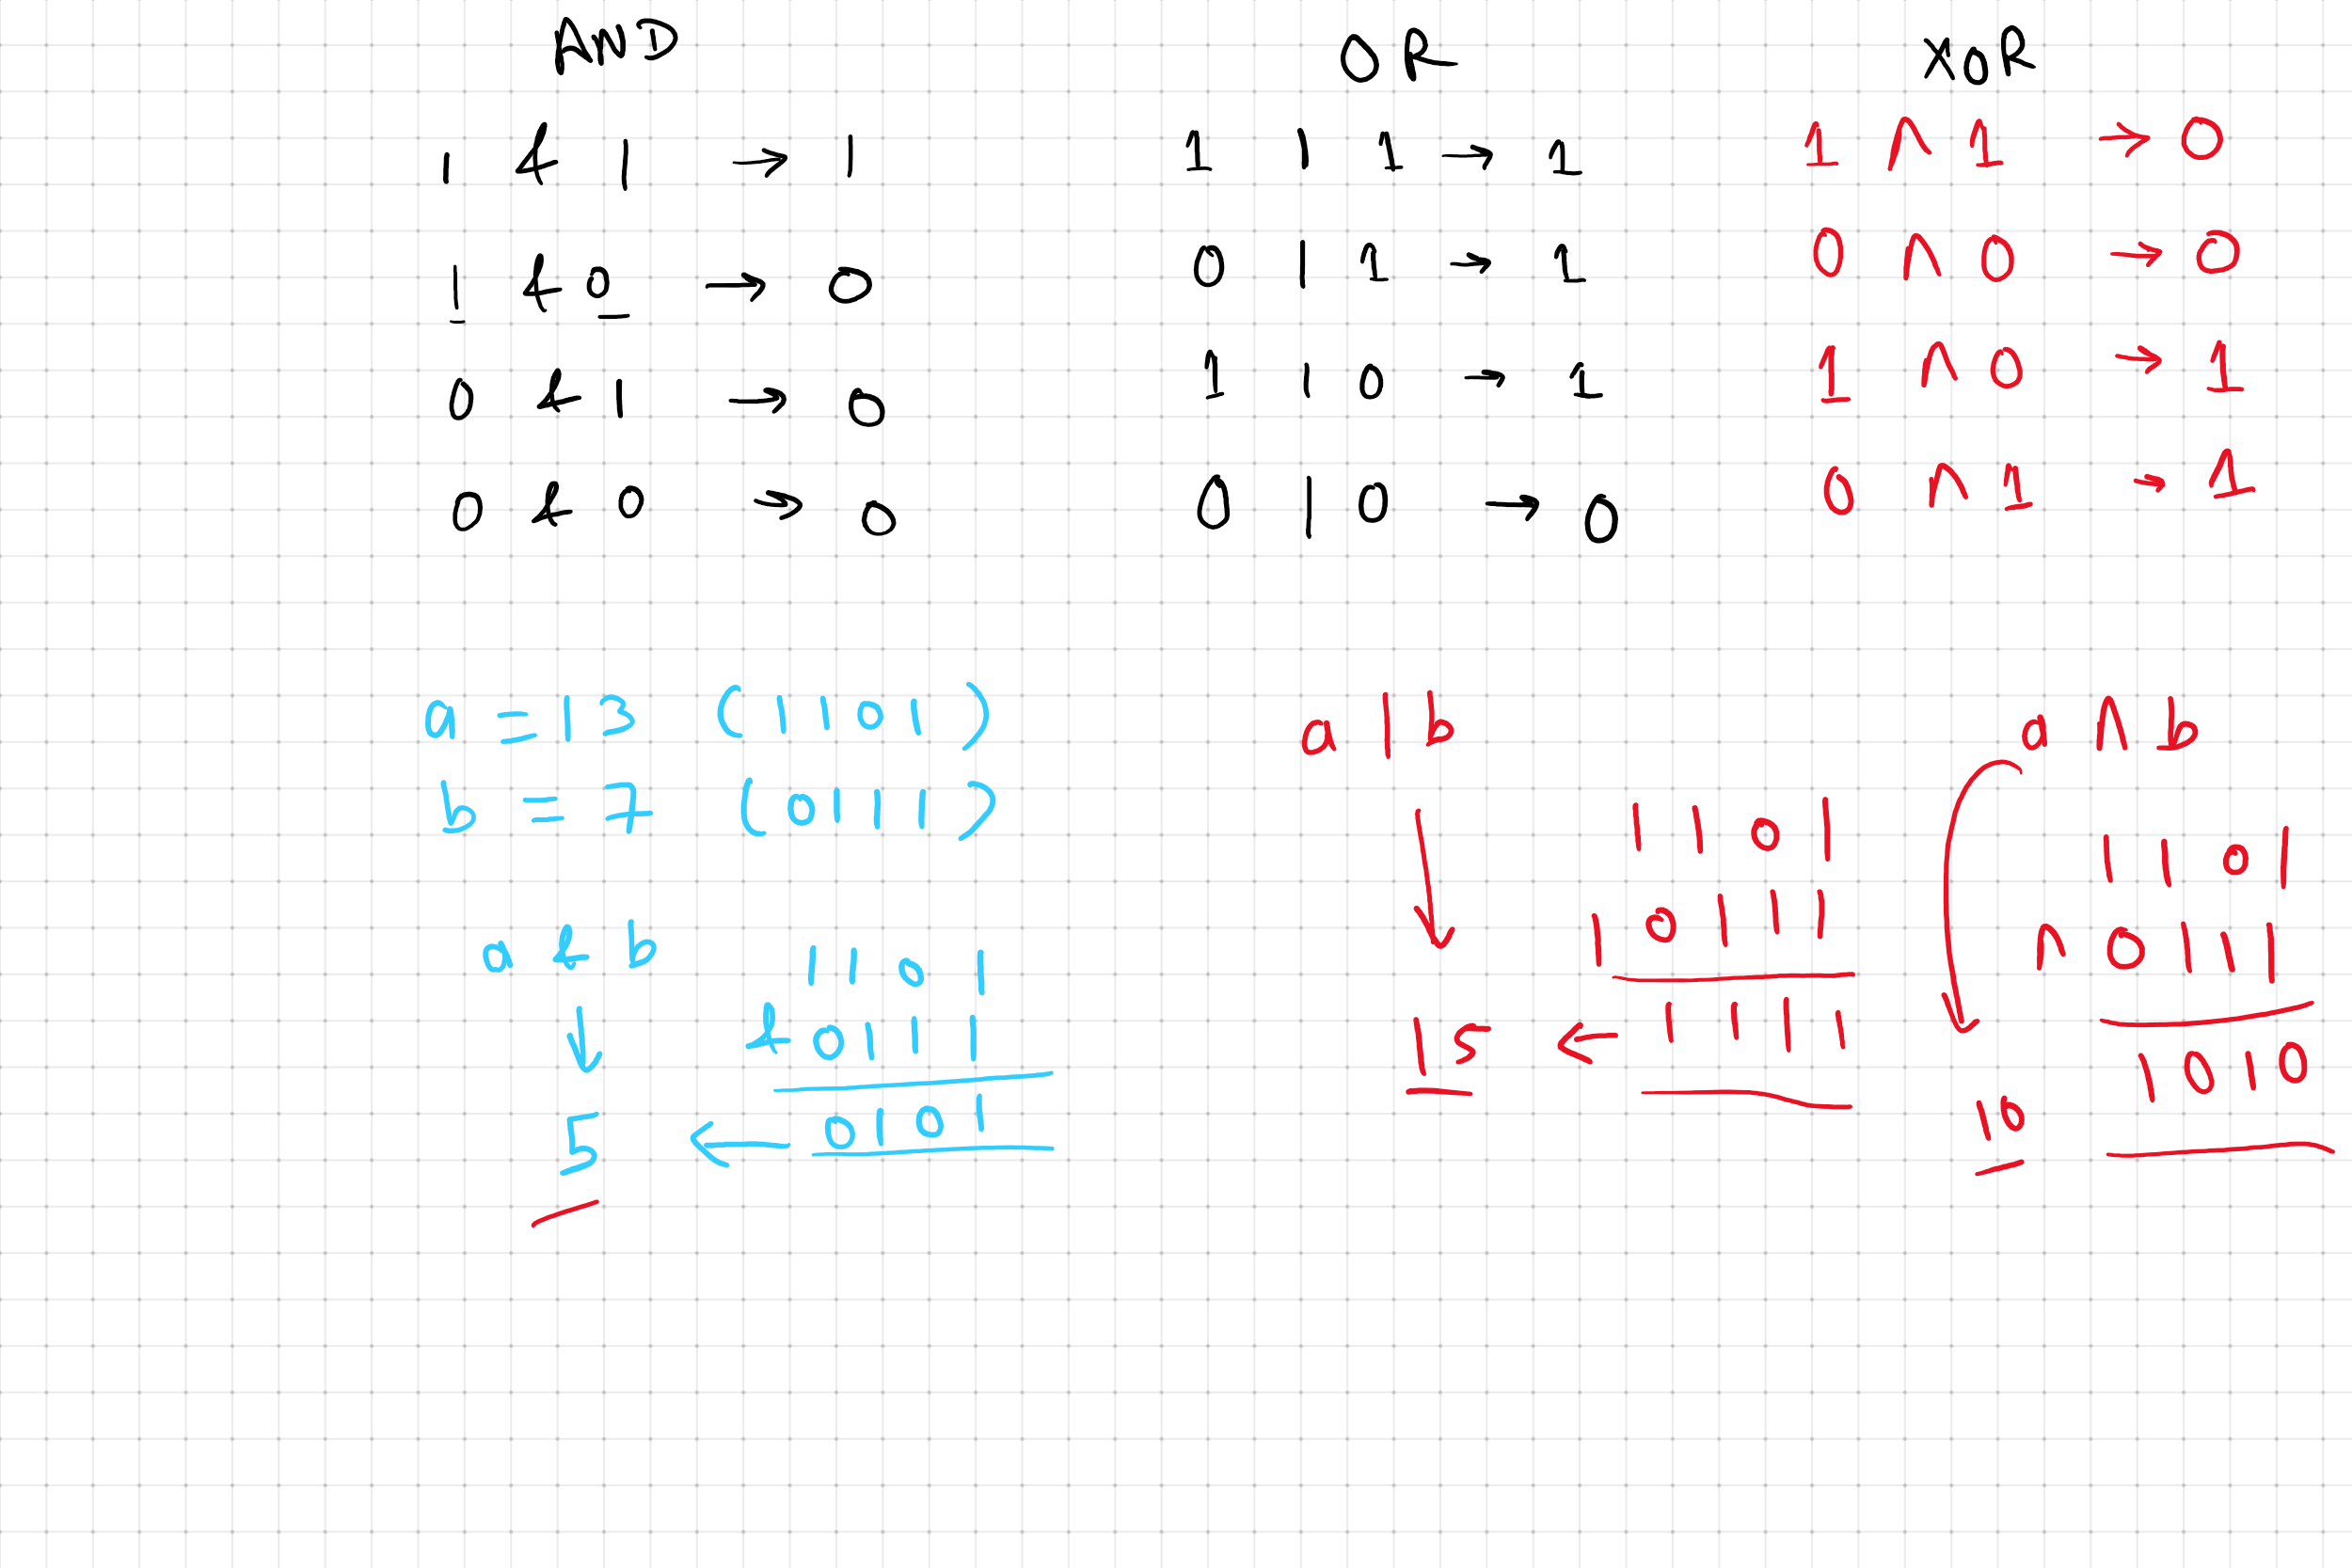 AND
1 & 1 → 1
1 & 0 → 0
0 & 1 → 0
0 & 0 → 0
OR
1 | 1 → 1
0 | 1 → 1
1 | 0 → 1
0 | 0 → 0
XOR
1 ^ 1 → 0
0 ^ 0 → 0
1 ^ 0 → 1
0 ^ 1 → 1
a = 13 (1101)
b = 7 (0111)
a & b
1101
& 0111
0101
← 
5
a | b
1101
| 0111
15 ← 1111
a ^ b
1101
^ 0111
1010
10